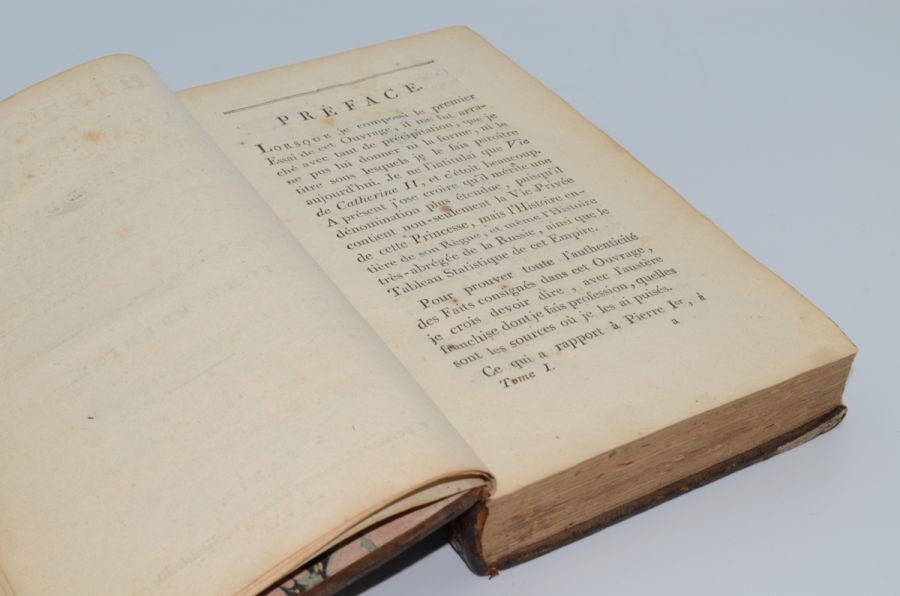 PRÉFACE
LORSQUE je composai le premier
Essai de cet Ouvrage, il me fut arra-
ché avec tant de précipitation, que je
ne pus lui donner ni la forme, ni le
titre sous lesquels je le fais paroître
aujourd'hui. Je ne l'intitulai que Vie
de Catherine II, et c'étoit beaucoup.
A présent j'ose croire qu'il mérite une
dénomination plus étendue, puisqu'il
contient non-seulement la Vie Privée
de cette Princesse, mais l'Histoire en-
tière de son Règne, et même l'Histoire
très-abrégée de la Russie, ainsi que le
Tableau Statistique de cet Empire.
Pour prouver toute l'authenticité
des Faits consignés dans cet Ouvrage,
je crois devoir dire, avec l'austère
franchise dont je fais profession, quelles
sont les sources où je les ai puisés.
Ce qui a rapport à Pierre Ier, à
Tome I. a